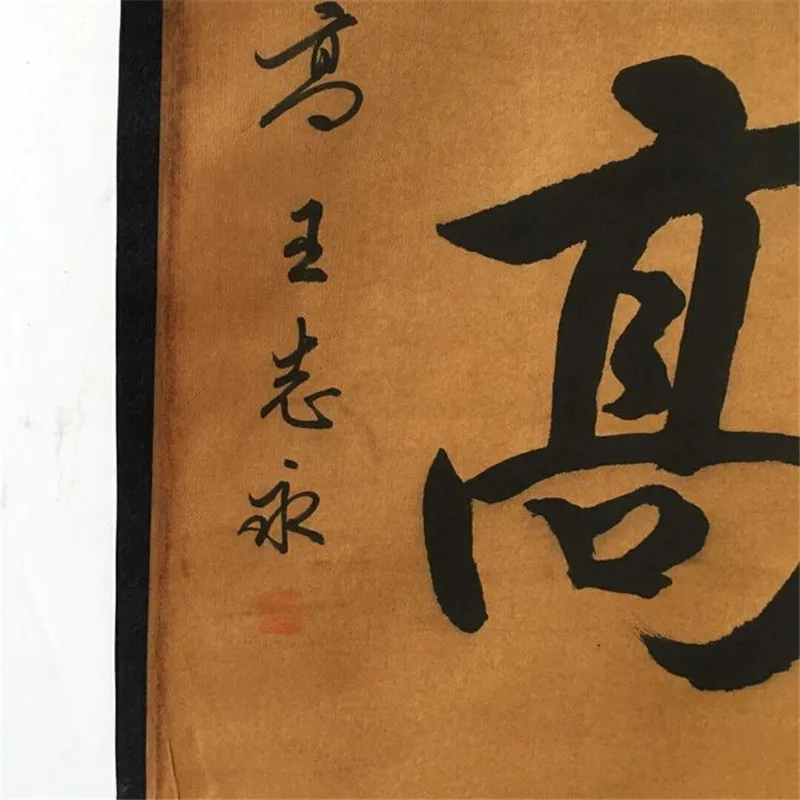 高
高王志永